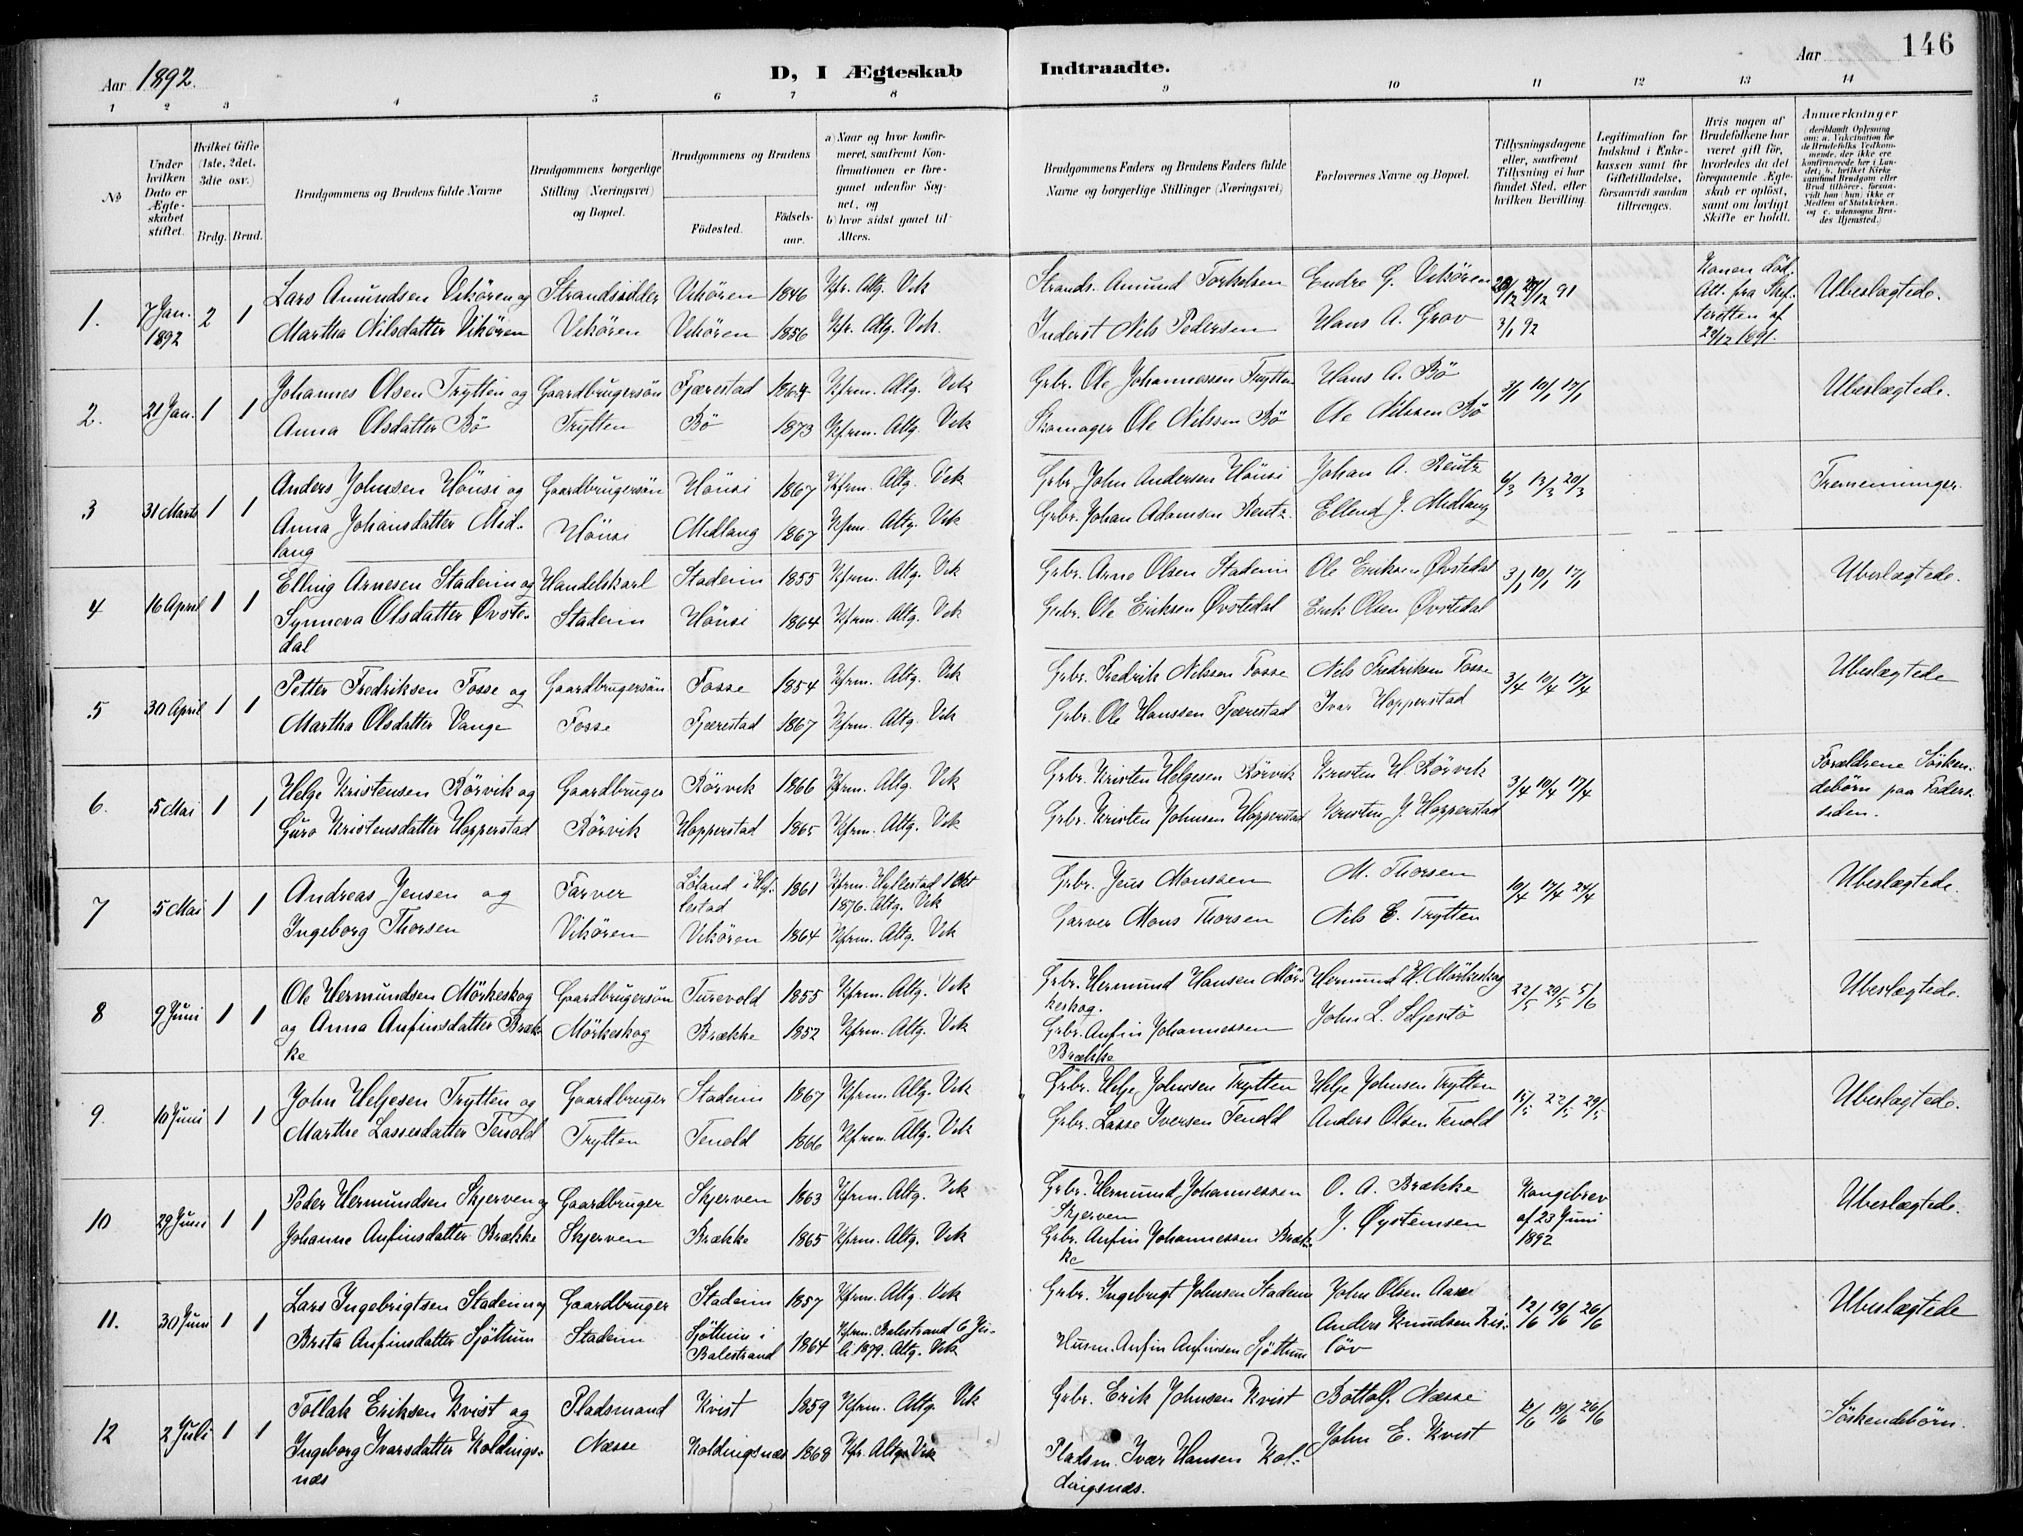 Aar 1892.
D, I Ægteskab Indtraadte.
Aar
146
1 2 3 4 5 6 7 8 9 10 11 12 13 14
No
Under hvilken Dato er Ægteskabet stiftet.
Hvilket Gifte (1ste, 2det, 3die osv.)
Brdg. Brud.
Brudgommens og Brudens fulde Navne
Brudgommens borgerlige Stilling (Næringsvei) og Bopæl.
Brudgommens og Brudens
Fødested.
Fødselsaar.
a) Naar og hvor konfirmeret, saafremt Konfirmationen er foregaaet udenfor Sognet, og
b) hvor sidst gaaet til Alters.
Brudgommens Faders og Brudens Faders fulde Navne og borgerlige Stillinger (Næringsvei)
Forlovernes Navne og Bopæl.
Tillysningsdagene eller, saafremt Tillysning ei har fundet Sted, efter hvilken Bevilling.
Legitimation for Indskud i Enkekassen samt for Giftetilladelse, forsaavidt saadan tiltrænges.
Hvis nogen af Brudefolkene har været gift før, hvorledes da det foregaaende Ægteskab er opløst, samt om lovligt Skifte er holdt.
Anmærkninger
(deriblandt Oplysning om: a. Vakcination for de Brudefolks Vedkommende, der ikke ere konfirmerede her i Landet; b. hvilket Kirkesamfund Brudgom eller Brud tilhører, forsaavidt han (hun) ikke er Medlem af Statskirken, og c. udensogns Brudes Hjemsted.)
1. 7 Jan. 1892 2 1 Lars Amundsen Vikören og Strandsidder Vikören 1846 Kfr. Altg. Vik Strands. Amund Torkelsen Endre G. Vikören 20/12 27/12 91 Konen död. Att. fra Skifteretten af 22/12 1891. Ubeslægtede.
Martha Nilsdatter Vikören Vikören Vikören 1856 Kfr. Altg. Vik. Inderst Nils Pedersen Hans A. Grov 3/1 92
2. 21 Jan. 1 1 Johannes Olsen Trytten og Gaardbrugersön Fjærestad 1864 Kfrm. Altg. Vik Grbr. Ole Johannessen Trytten Hans A. Bö 3/1 10/1 17/1 Ubeslægtede.
Anna Olsdatter Bö Trytten Bö 1873 Kfrm. Altg. Vik Skomager Ole Nilssen Bö Ole Nilssen Bö
3 31 Marts 1 1 Anders Johnsen Hönsi og Gaardbrugersön Hönsi 1867 Kfrm. Altg. Vik Grbr. John Andersen Hönsi Johan A. Reutz 6/3 13/3 20/3 Tremenninger.
Anna Johansdatter Midlang Hönsi Midlang 1867 Kfrm. Altg. Vik Grbr. Johan Adamsen Reutz. Ellend J. Midlang
4 16 April 1 1 Elling Arnesen Stadeim og Handelskarl Stadeim 1855 Kfrm. Altg. Vik Grbr. Arne Olsen Stadeim Ole Eriksen Övstedal 3/1 10/1 17/1 Ubeslægtede.
Synneva Olsdatter Övstedal Stadeim Hönsi 1864 Kfrm. Altg. Vik Grbr. Ole Eriksen Övstedal Erik Olsen Övstedal
5 30 April 1 1 Petter Fredriksen Fosse og Gaardbrugersön Fosse 1854 Kfrm. Altg. Vik Grbr. Fredrik Nilssen Fosse Nils Fredriksen Fosse 3/4 10/4 17/4 Ubeslægtede
Martha Olsdatter Vange Fosse Fjærestad 1867 Kfrm. Altg. Vik Grbr. Ole Hanssen Fjærestad Ivar Hopperstad
6. 5 Mai 1 1 Helge Kristensen Rörvik og Gaardbruger Rörvik 1866 Kfrm. Altg. Vik Grbr. Kristen Helgesen Rörvik Kristen H Rörvik 3/4 10/4 17/4 Forældrene Söskendebörn paa Faderssiden.
Guro Kristensdatter Hopperstad Rörvik Hopperstad 1865 Kfrm. Altg. Vik Grbr. Kristen Johnsen Hopperstad Kristen J. Hopperstad
7 5 Mai 1 1 Andreas Jensen og Farver Löland i Hyllestad 1861 Kfrm. Hyllestad 1 Okt 1876. Altg. Vik Grbr. Jens Monssen M. Thorsen 10/4 17/4 24/4 Ubeslægtede.
Ingeborg Thorsen Vikören Vikören 1864 Kfrm. Altg. Vik Garver Mons Thorsen Nils E. Trytten
8 9 Juni 1 1 Ole Hermundsen Mörkeskog Gaardbrugersön Turevold 1855 Kfrm. Altg. Vik Grbr. Hermund Hansen Mörkeskog. Hermund H. Mörkeskog 22/5 29/5 5/6 Ubeslægtede.
og Anna Anfinsdatter Brække Mörkeskog Brække 1852 Kfrm. Altg. Vik Grbr. Anfin Johannessen Brække John L. Seljestö
9. 10 Juni 1 1 John Helgesen Trytten og Gaardbruger Stadeim 1867 Kfrm. Altg. Vik Grbr. Helge Johnsen Trytten Helge Johnsen Trytten 15/5 22/5 29/5 Ubeslægtede.
Marthe Lassesdatter Tenold Trytten Tenold 1866 Kfrm. Altg. Vik Grbr. Lasse Iversen Tenold Anders Olsen Tenold
10 29 Juni 1 1 Peder Hermundsen Skjerven og Gaardbruger Skjerven 1863 Kfrm. Altg. Vik Grbr. Hermund Johannessen Skjerven O. A. Brække Kongebrev af 23 Juni 1892 Ubeslægtede.
Johanne Anfinsdatter Brække Skjerven Brække 1865 Kfrm. Altg. Vik Grbr. Anfin Johannessen Brække J. Öystensen
11. 30 Juni 1 1 Lars Ingebrigtsen Stadeim og Gaardbruger Stadeim 1857 Kfrm. Altg. Vik Grbr. Ingebrigt Johnsen Stadeim John Olsen Aase 12/6 19/6 26/6 Ubeslægtede
Brita Anfinsdatter Sjöttum Stadeim Sjöttum i Balestrand 1864 Kfrm. Balestrand 6 Juli 1879. Altg. Vik Husm. Anfin Anfinsen Sjöttum Anders Knudsen Rislöv
12 2 Juli 1 1 Tollak Eriksen Kvist og Pladsmand Kvist 1859 Kfrm. Altg. Vik Grbr. Erik Johnsen Kvist Bottolf Næsse 12/6 19/6 26/6 Söskendebörn.
Ingeborg Ivarsdatter Koldingsnæs Næsse Koldingsnæs 1868 Kfr. Altg. Vik Pladsm. Ivar Hansen Koldingsnæs. John E. Kvist